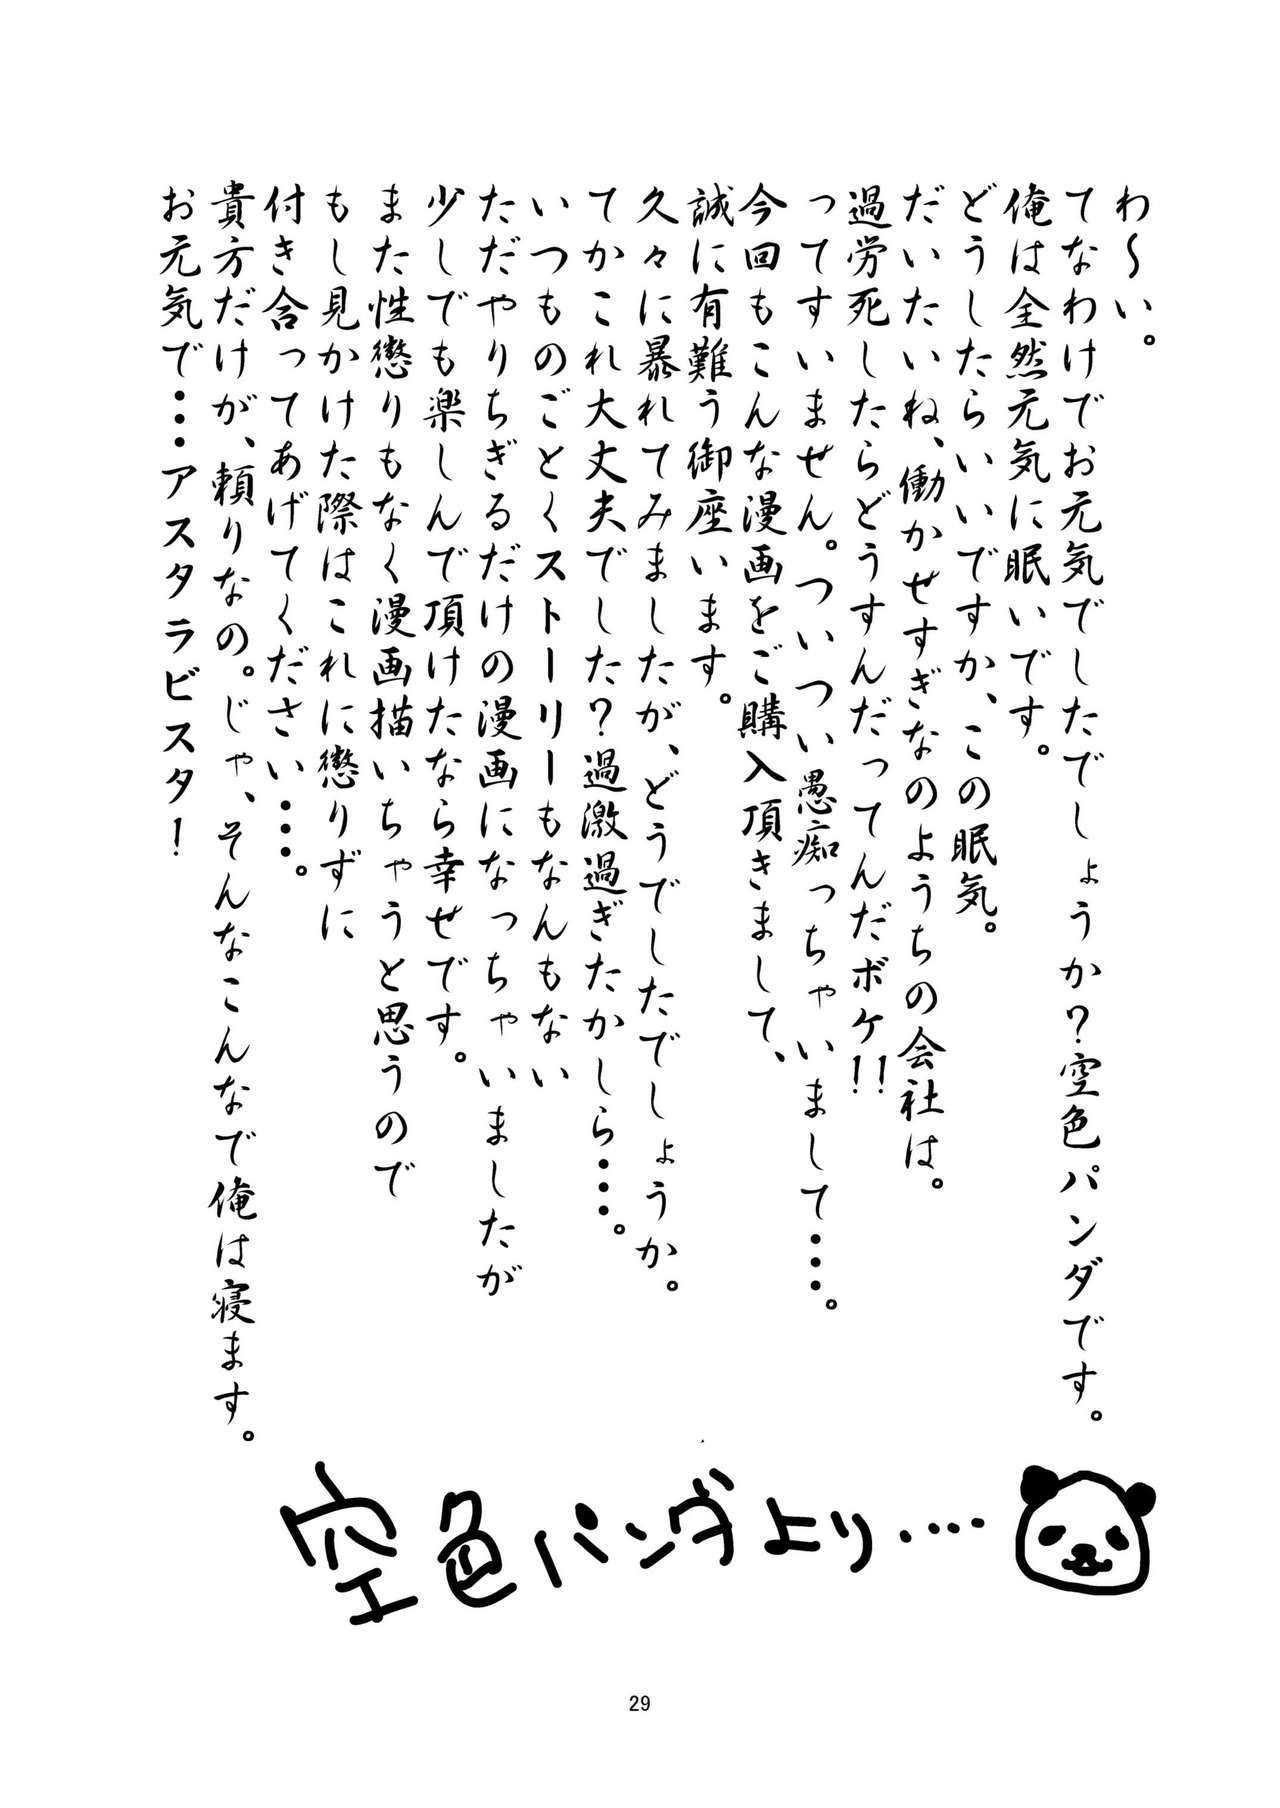 わ～い。
てなわけでお元気でしたでしょうか？空色パンダです。
俺は全然元気に眠いです。
どうしたらいいですか、この眠気。
だいたいね、働かせすぎなのようちの会社は。
過労死したらどうすんだってんだボケ!!
ってすいません。ついつい愚痴っちゃいまして…。
今回もこんな漫画をご購入頂きまして、
誠に有難う御座います。
久々に暴れてみましたが、どうでしたでしょうか。
てかこれ大丈夫でした？過激過ぎたかしら…。
いつものごとくストーリーもなんもない
ただやりちぎるだけの漫画になっちゃいましたが
少しでも楽しんで頂けたなら幸せです。
また性懲りもなく漫画描いちゃうと思うので
もし見かけた際はこれに懲りずに
付き合ってあげてください…。
貴方だけが、頼りなの。じゃ、そんなこんなで俺は寝ます。
お元気で…アスタラビスタ！
空色パンダより....
29